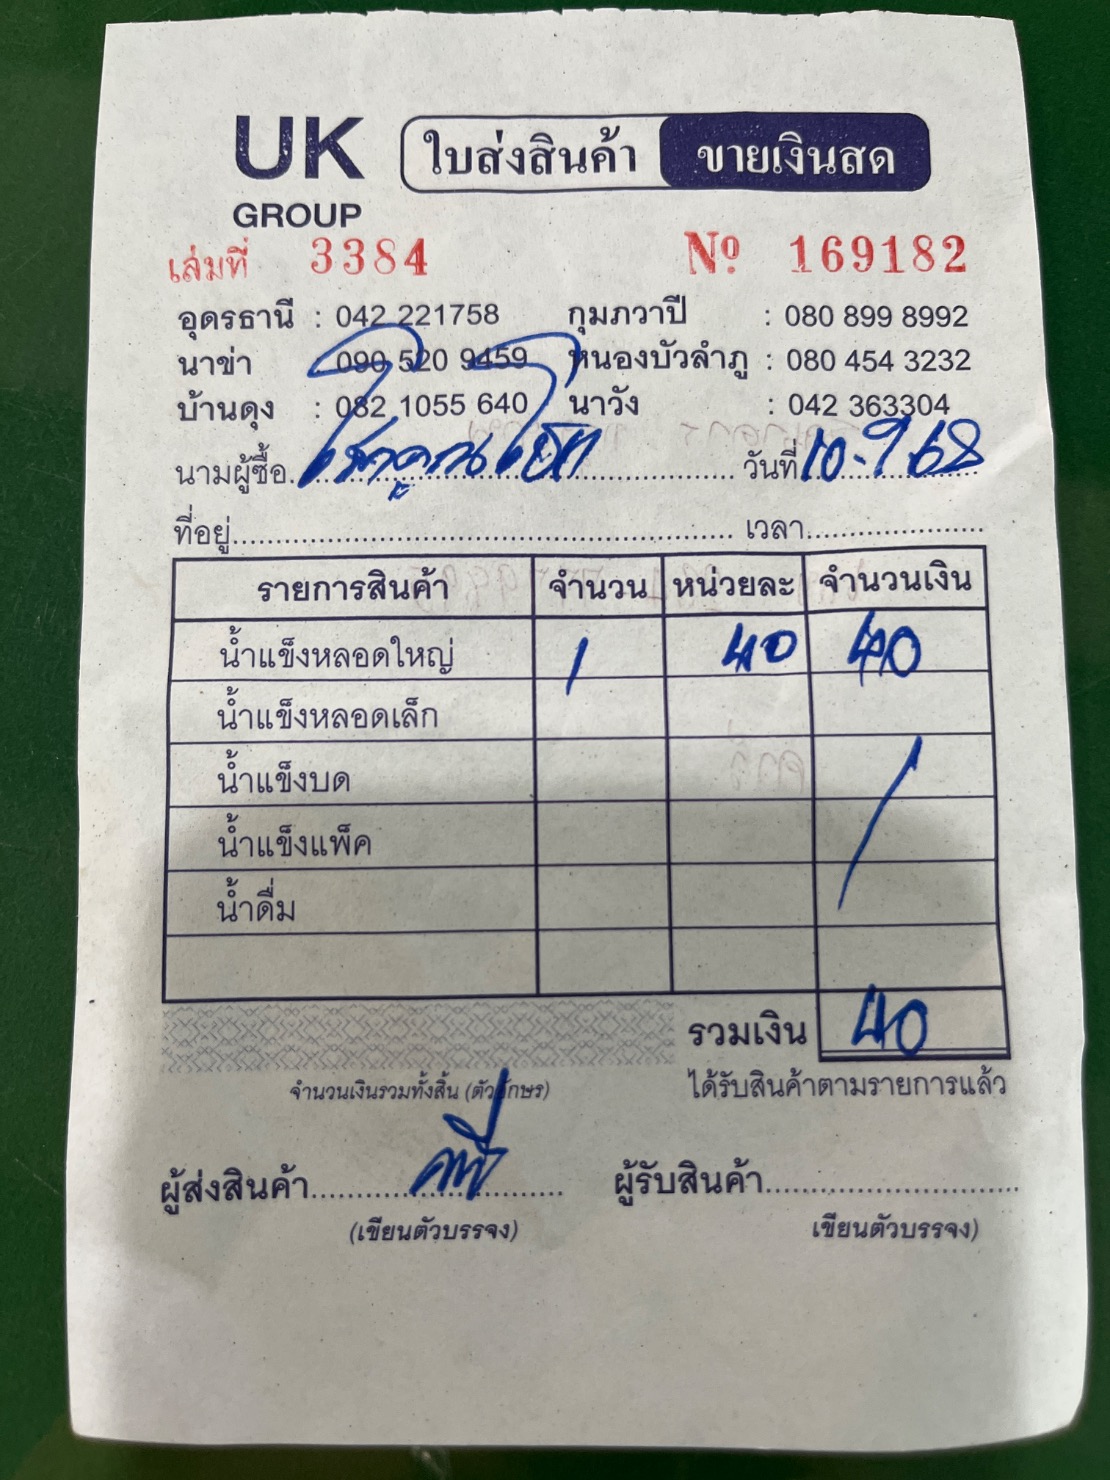 UK
GROUP
ใบส่งสินค้า ขายเงินสด
เล่มที่ 3384 Nº 169182
อุดรธานี : 042 221758 กุมภวาปี : 080 899 8992
นาข่า 090 520 9459 หนองบัวลำภู : 080 454 3232
บ้านดุง : 082 1055 640 นาวัง : 042 363304
นามผู้ซื้อ วันที่ 10-9-68
ที่อยู่ เวลา
รายการสินค้า จำนวน หน่วยละ จำนวนเงิน
น้ำแข็งหลอดใหญ่ 1 40 40
น้ำแข็งหลอดเล็ก
น้ำแข็งบด
น้ำแข็งแพ็ค
น้ำดื่ม
รวมเงิน 40
จำนวนเงินรวมทั้งสิ้น (ตัวอักษร) ได้รับสินค้าตามรายการแล้ว
ผู้ส่งสินค้า ผู้รับสินค้า
(เขียนตัวบรรจง) เขียนตัวบรรจง)